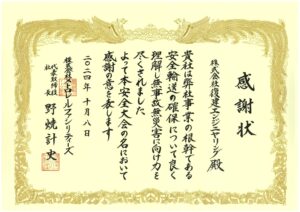 感謝状
株式会社復建エンジニヤリング殿
貴社は弊社事業の根幹である
安全輸送の確保について良く
理解し無事故無災害に向け力を
尽くされました
よって本安全大会の名において
感謝の意を表します
二〇二四年十月八日
株式会社メトロレールファシリティーズ
代表取締役
社長
野焼計史